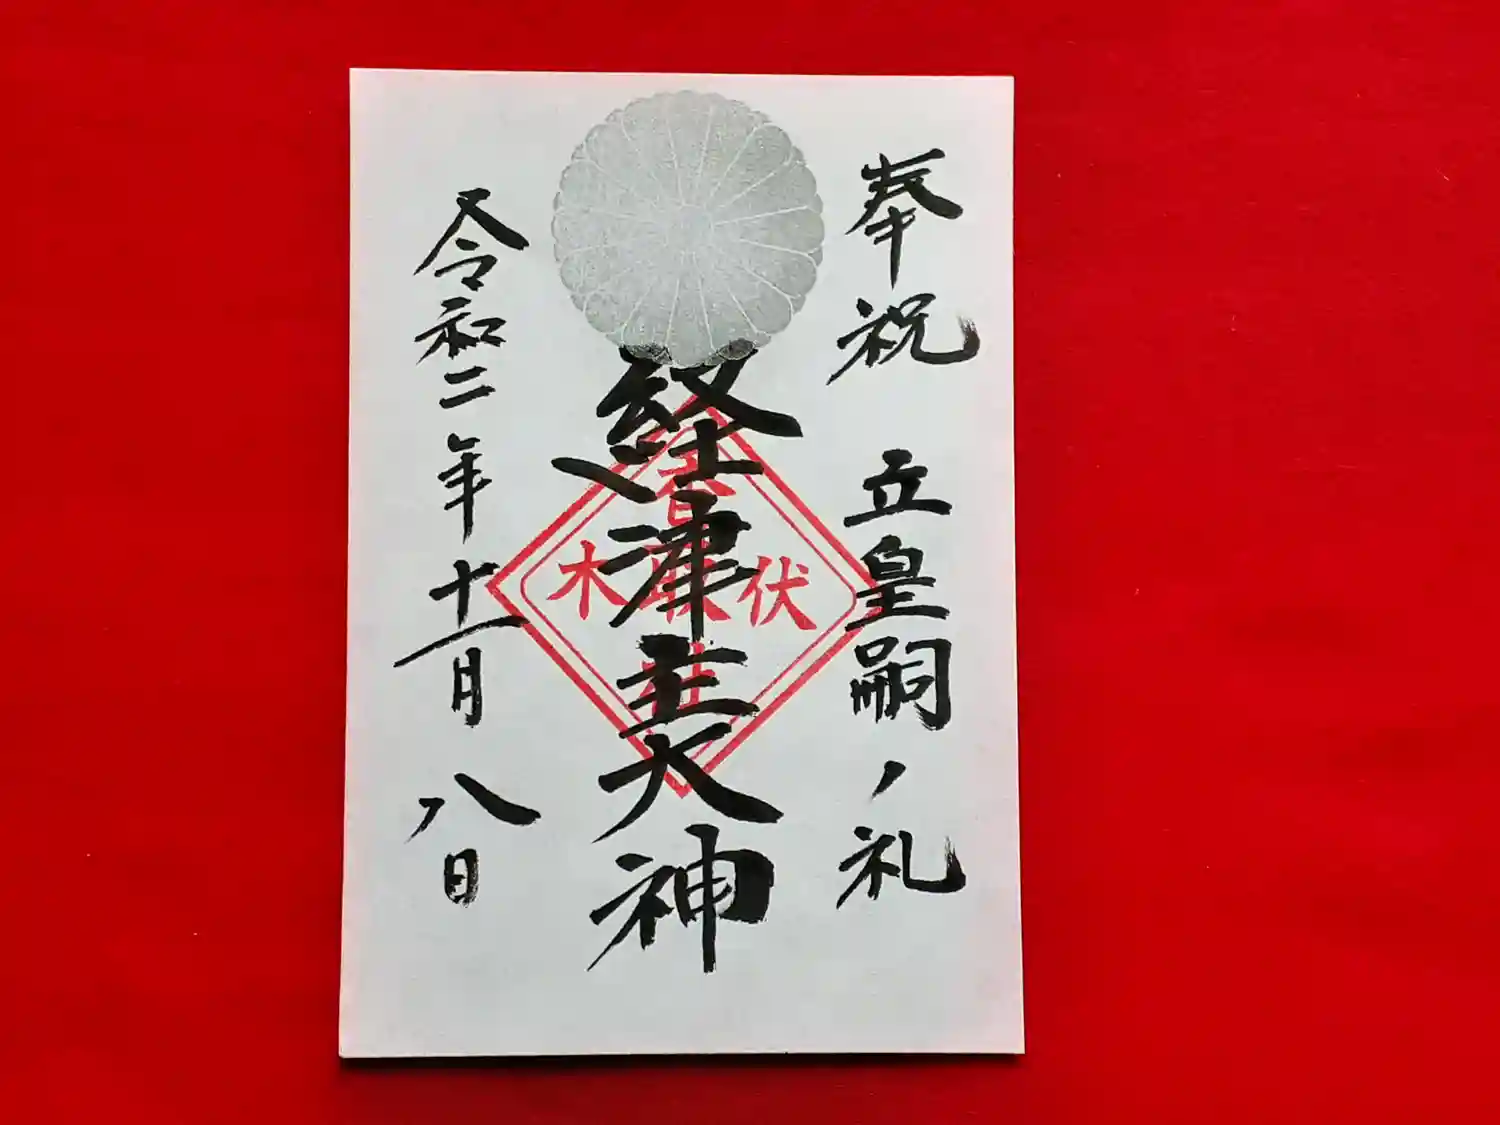 奉祝 立皇嗣ノ礼
経津主大神
令和二年十一月八日
伏木
香取